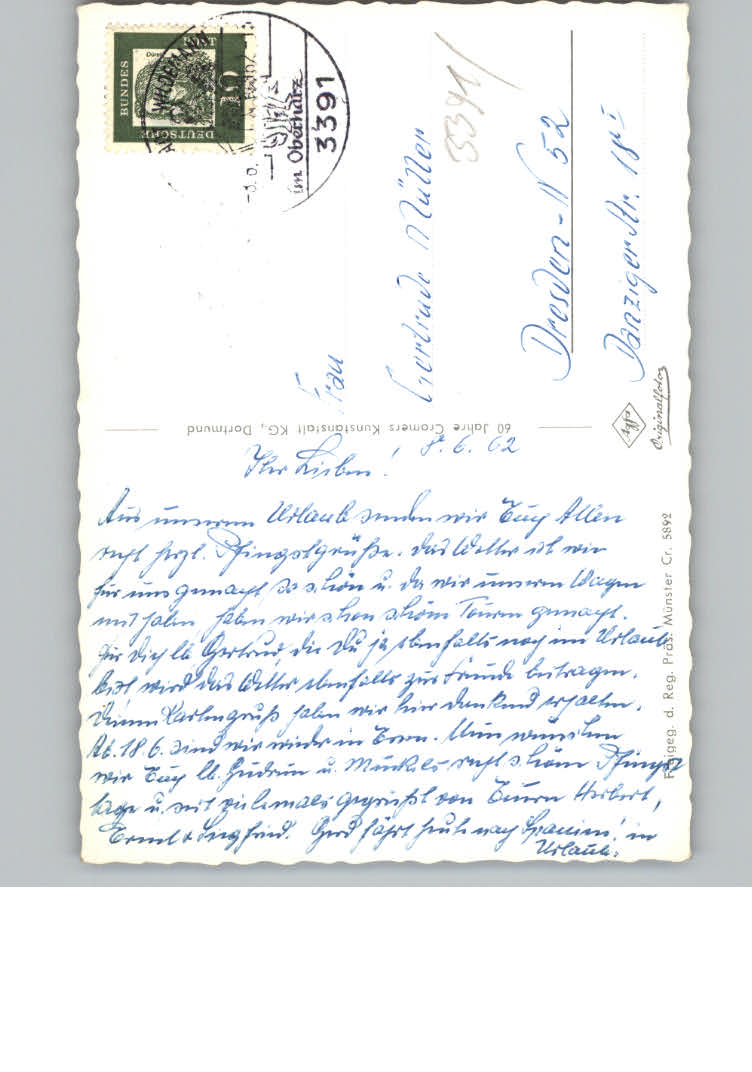 DEUTSCHE
BUNDES
POST
10
WILDEMANN
im Oberharz
3391
3391
Frau
Gertrude Müller
Dresden-N 52
Danziger Str. 18 I
60 Jahre Cramers Kunstanstalt KG., Dortmund
Agfa
Originalfoto
Freigeg. d. Reg. Präs. Münster Cr. 5892
8.6.62
Ihr Lieben!
Aus unserem Urlaub senden wir Euch Allen
recht herzl. Pfingstgrüße. Das Wetter ist wie
für uns gemacht so schön u. da wir unseren Wagen
mit haben haben wir schon schöne Touren gemacht.
Für Dich lb. Gertrud, die Du ja ebenfalls noch im Urlaub
bist wird das Wetter ebenfalls zur Freude beitragen.
Deinen Kartengruß haben wir hier dankend erhalten.
Ab. 18.6. sind wir wieder in Nun wünschen
wir Euch lb. Gudrun u. recht schöne Pfingst
tage u. seid vielemals gegrüßt von Euren Herbert,
Erna & Siegfried. Gerd fährt heute nach Spanien! in
Urlaub.